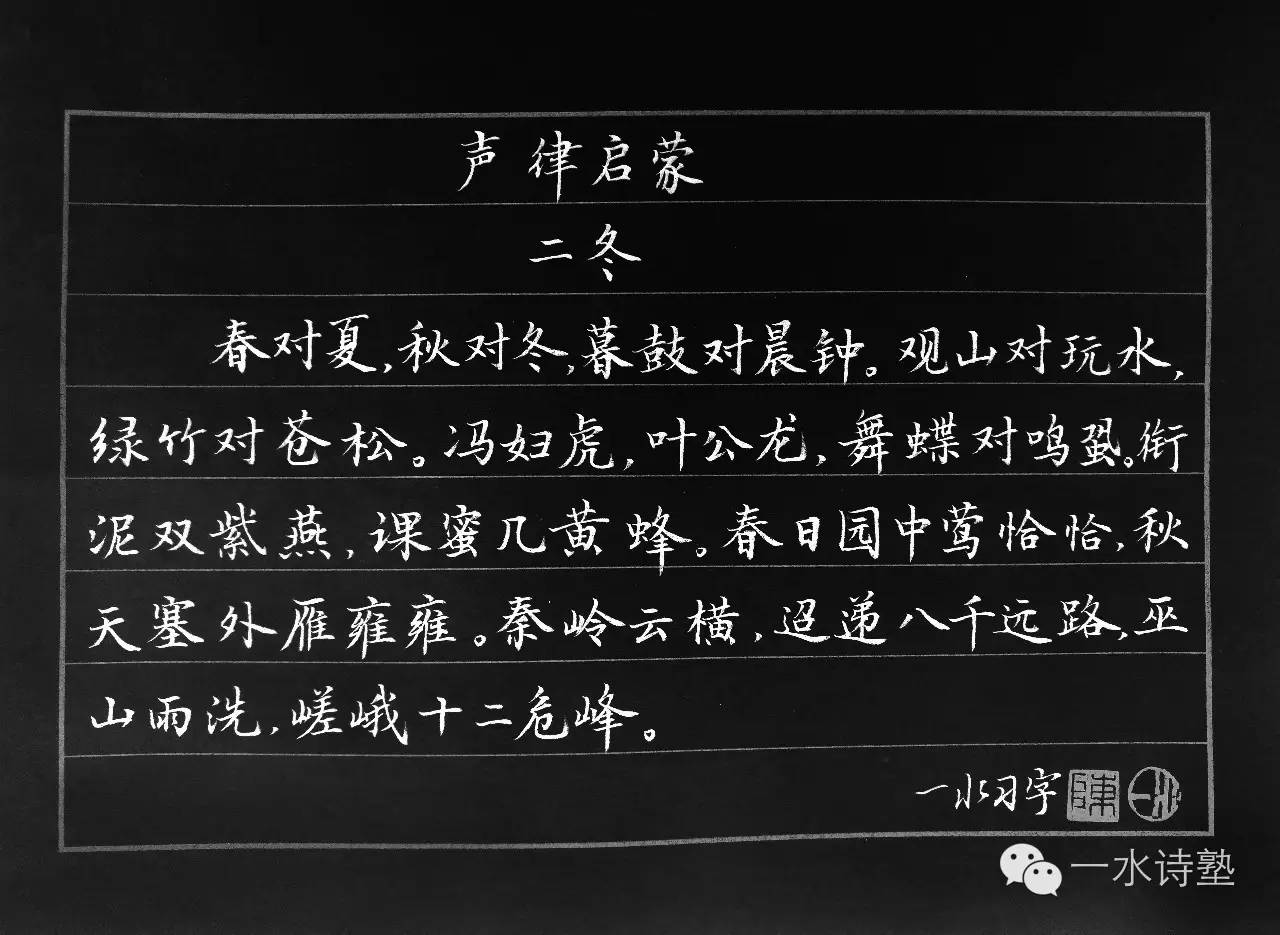 声律启蒙
二冬
春对夏，秋对冬，暮鼓对晨钟。观山对玩水，
绿竹对苍松。冯妇虎，叶公龙，舞蝶对鸣蛩。衔
泥双紫燕，课蜜几黄蜂。春日园中莺恰恰，秋
天塞外雁雍雍。秦岭云横，迢递八千远路，巫
山雨洗，嵯峨十二危峰。
一水习字
陳
一水
一水诗塾